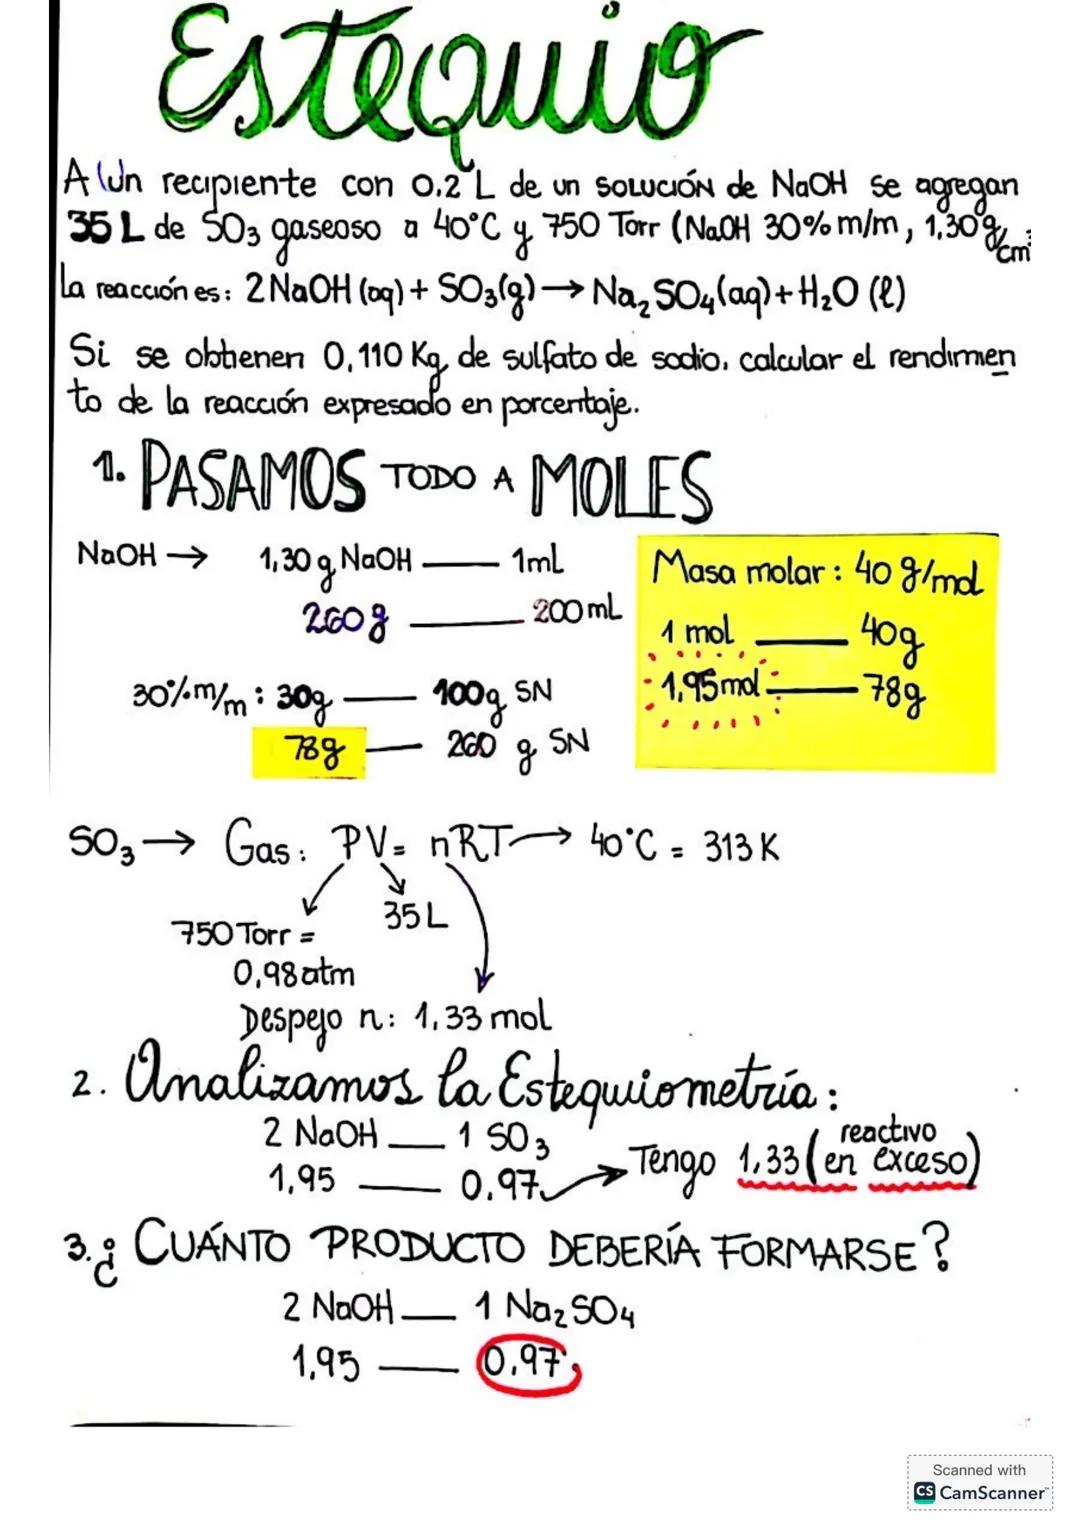 Estequio
A un recipiente con 0,2 L de un SOLUCIÓN de NaOH se agregan
35 L de SO₃ gaseoso a 40°C y 750 Torr (NaOH 30% m/m, 1,30 g/cm³
La reacción es: 2 NaOH (aq) + SO₃(g) → Na₂SO₄(aq) + H₂O (l)
Si se obtienen 0,110 Kg de sulfato de sodio, calcular el rendimien
to de la reacción expresado en porcentaje.
1. PASAMOS TODO A MOLES
NaOH → 1,30 g NaOH — 1mL
260g — 200mL
30% m/m : 30g — 100g SN
78g — 260 g SN
Masa molar : 40 g/mol
1 mol — 40g
1,95mol — 78g
SO₃ → Gas: PV = nRT → 40°C = 313 K
35 L
750 Torr =
0,98atm
Despejo n: 1,33 mol
2. Analizamos la Estequiometría:
2 NaOH — 1 SO₃
1,95 — 0,97 → Tengo 1,33 (reactivo en exceso)
3. ¿CUÁNTO PRODUCTO DEBERÍA FORMARSE?
2 NaOH — 1 Na₂SO₄
1,95 — 0,97
Scanned with
CS CamScanner